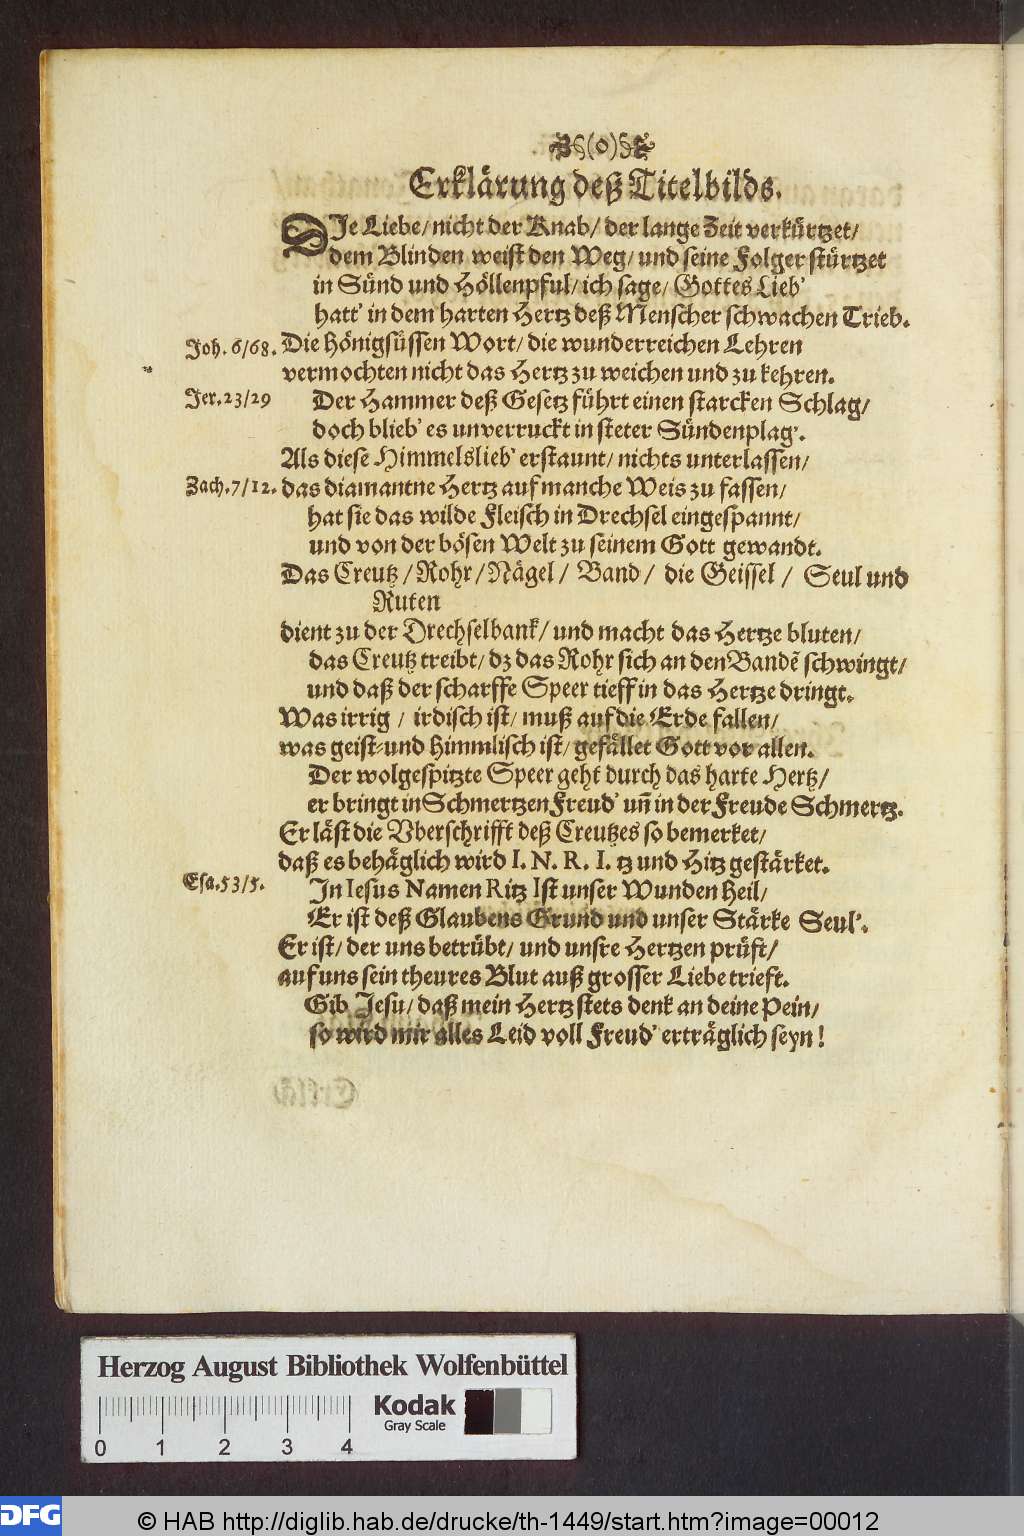 (o)
Erklärung deß Titelbilds.
DIe Liebe/ nicht der Knab/ der lange Zeit verkürtzet/
dem Blinden weist den Weg/ und seine Folger stürtzet
in Sünd und Höllenpful/ ich sage/ Gottes Lieb'
hatt' in dem harten Hertz deß Menscher schwachen Trieb.
Joh. 6/68. Die hönigsüssen Wort/ die wunderreichen Lehren
vermochten nicht das Hertz zu weichen und zu kehren.
Jer. 23/29 Der Hammer deß Gesetz führt einen starcken Schlag/
doch blieb' es unverruckt in steter Sündenplag'.
Als diese Himmelslieb' erstaunt/ nichts unterlassen/
Zach. 7/12. das diamantne Hertz auf manche Weis zu fassen/
hat sie das wilde Fleisch in Drechsel eingespannt/
und von der bösen Welt zu seinem Gott gewandt.
Das Creutz / Rohr / Nägel / Band / die Geissel / Seul und
Ruten
dient zu der Drechselbank/ und macht das Hertze bluten/
das Creutz treibt/ dz das Rohr sich an den Bandē schwingt/
und daß der scharffe Speer tieff in das Hertze dringt.
Was irrig / irdisch ist/ muß auf die Erde fallen/
was geist- und himmlisch ist/ gefället Gott vor allen.
Der wolgespitzte Speer geht durch das harte Hertz/
er bringt in Schmertzen Freud' uñ in der Freude Schmertz.
Er läst die Vberschrifft deß Creutzes so bemerket/
daß es behäglich wird I. N. R. I. tz und Hitz gestärket.
Esa. 53/5. In Iesus Namen Ritz Ist unser Wunden Heil/
Er ist deß Glaubens Grund und unser Stärke Seul'.
Er ist/ der uns betrübt/ und unsre Hertzen prüft/
auf uns sein theures Blut auß grosser Liebe trieft.
Gib Jesu/ daß mein Hertz stets denk an deine Pein/
so wird mir alles Leid voll Freud' erträglich seyn!
Herzog August Bibliothek Wolfenbüttel
Kodak
Gray Scale
0 1 2 3 4
DFG
© HAB http://diglib.hab.de/drucke/th-1449/start.htm?image=00012